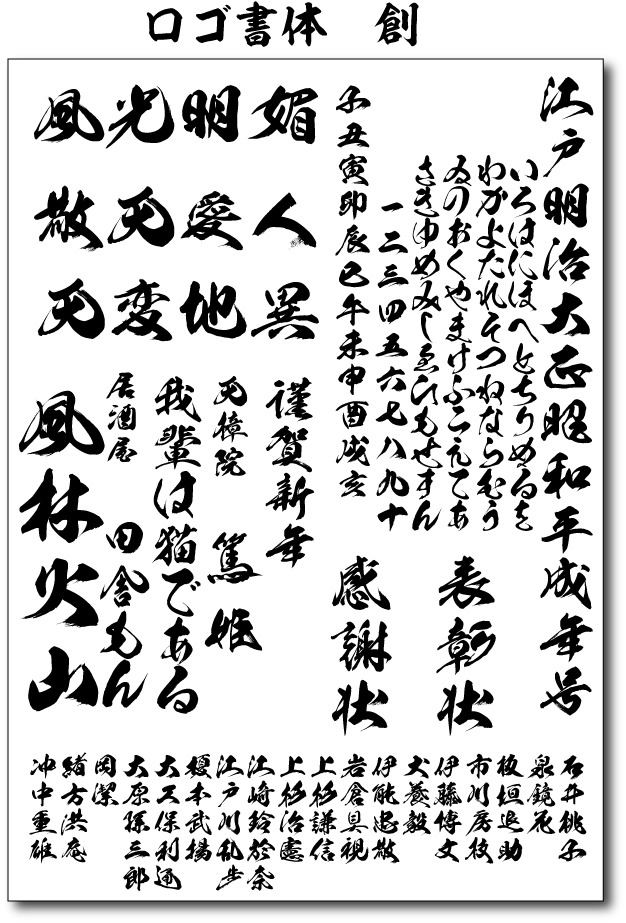 ロゴ書体　創
江戸明治大正昭和平成年号
いろはにほへとちりぬるを
わかよたれそつねならむう
ゐのおくやまけふこえてあ
さきゆめみしゑひもせすん
一二三四五六七八九十
子丑寅卯辰巳午未申酉戌亥
表彰状
感謝状
風光明媚
敬天愛人
天変地異
謹賀新年
天樟院　篤姫
我輩は猫である
居酒屋　田舎もん
風林火山
石井桃子
泉鏡花
板垣退助
市川房枝
伊藤博文
犬養毅
伊能忠敬
岩倉具視
上杉謙信
上杉治憲
江崎玲於奈
江戸川乱歩
榎本武揚
大久保利通
大原孫三郎
岡潔
緒方洪庵
冲中重雄